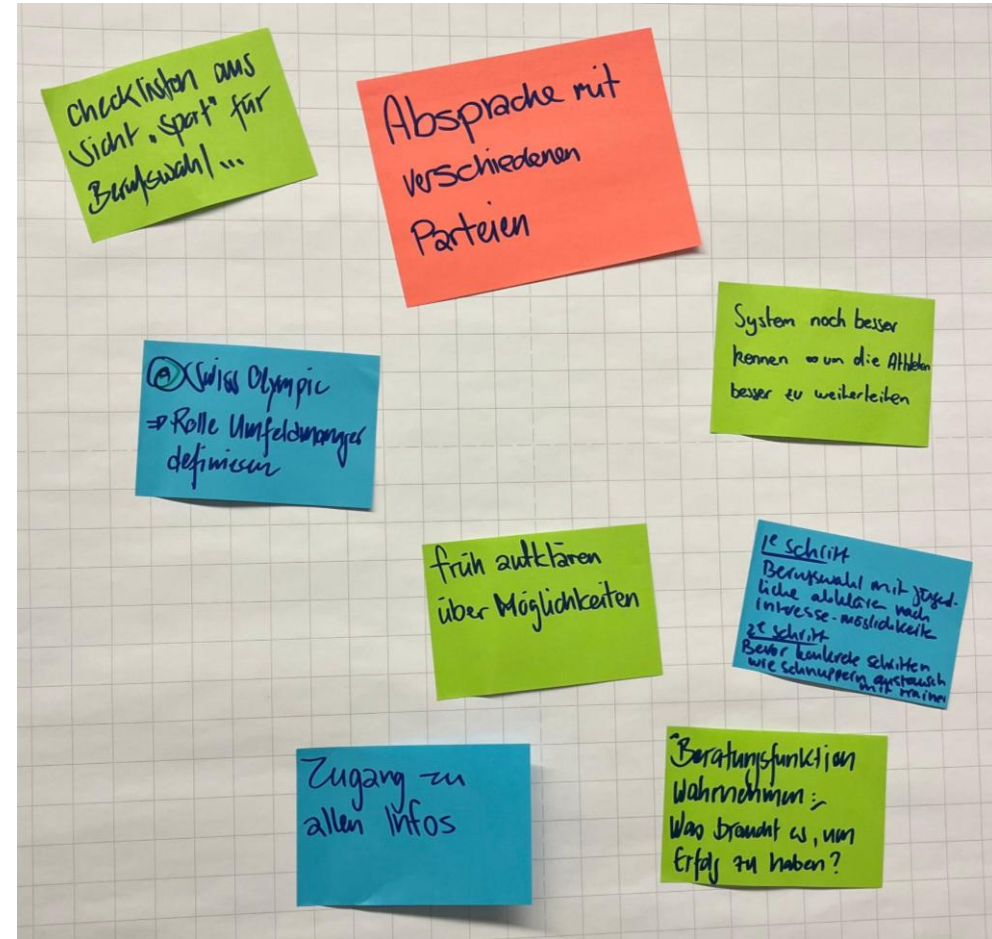 Checklisten aus
Sicht "Sport" für
Berufswahl ...
Absprache mit
verschiedenen
Parteien
System noch besser
kennen um die Athleten
besser zu weiterleiten
A Swiss Olympic
⇒ Rolle Umfeldmanager
definieren
früh aufklären
über Möglichkeiten
1e Schritt
Berufswahl mit jugend-
liche abklären nach
interesse-möglichkeite
2e Schritt
Bevor konkrete schritten
wie schnuppern austausch
mit trainer
Zugang zu
allen Infos
Beratungsfunktion
Wahrnehmen:
Was braucht es, um
Erfolg zu haben?